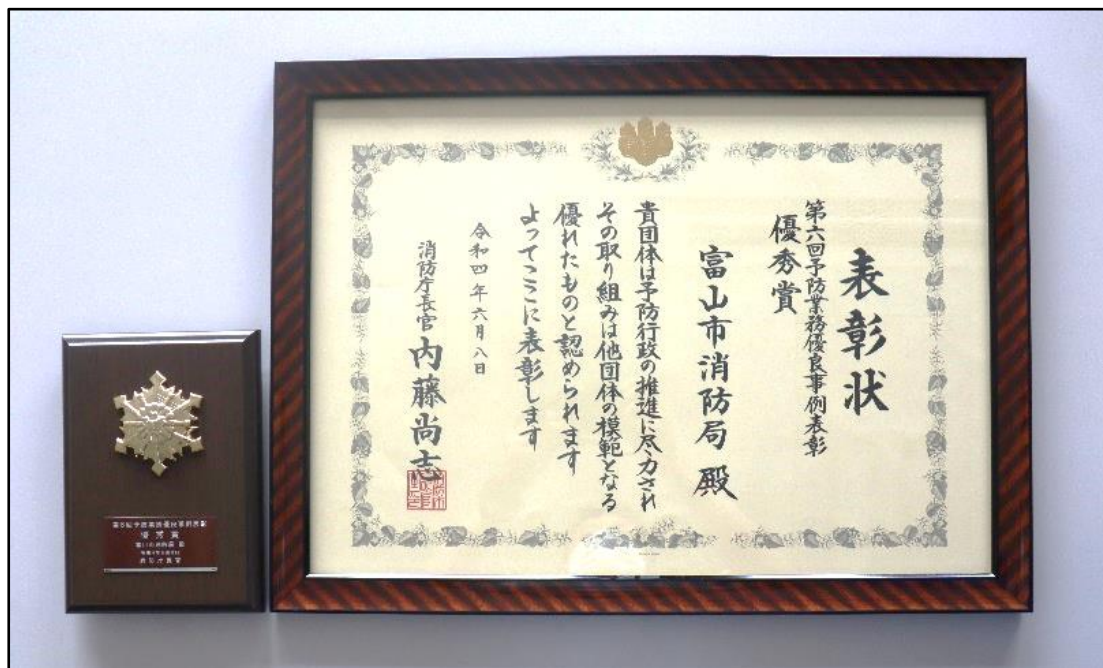 表彰状
第六回予防業務優良事例表彰
優秀賞
富山市消防局 殿
貴団体は予防行政の推進に尽力され
その取り組みは他団体の模範となる
優れたものと認められます
よってここに表彰します
令和四年六月八日
消防庁長官 内藤尚志
第6回予防業務優良事例表彰
優秀賞
富山市消防局 殿
令和4年6月8日
消防庁長官